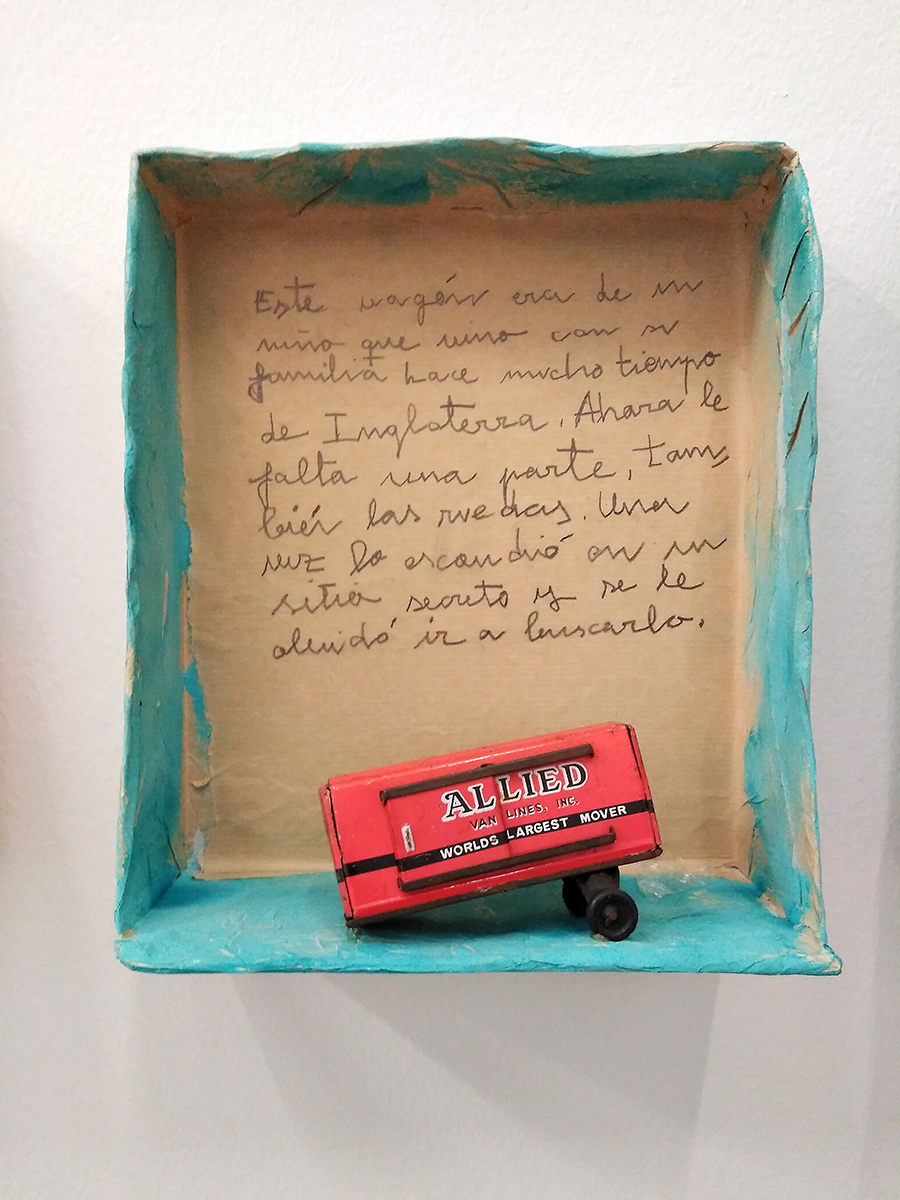 Este vagón era de un
niño que vino con su
familia hace mucho tiempo
de Inglaterra. Ahora le
falta una parte, tam,
bién las ruedas. Una
vez lo escondió en un
sitio secreto y se le
olvidó ir a buscarlo.
ALLIED
VAN LINES, INC.
WORLDS LARGEST MOVER